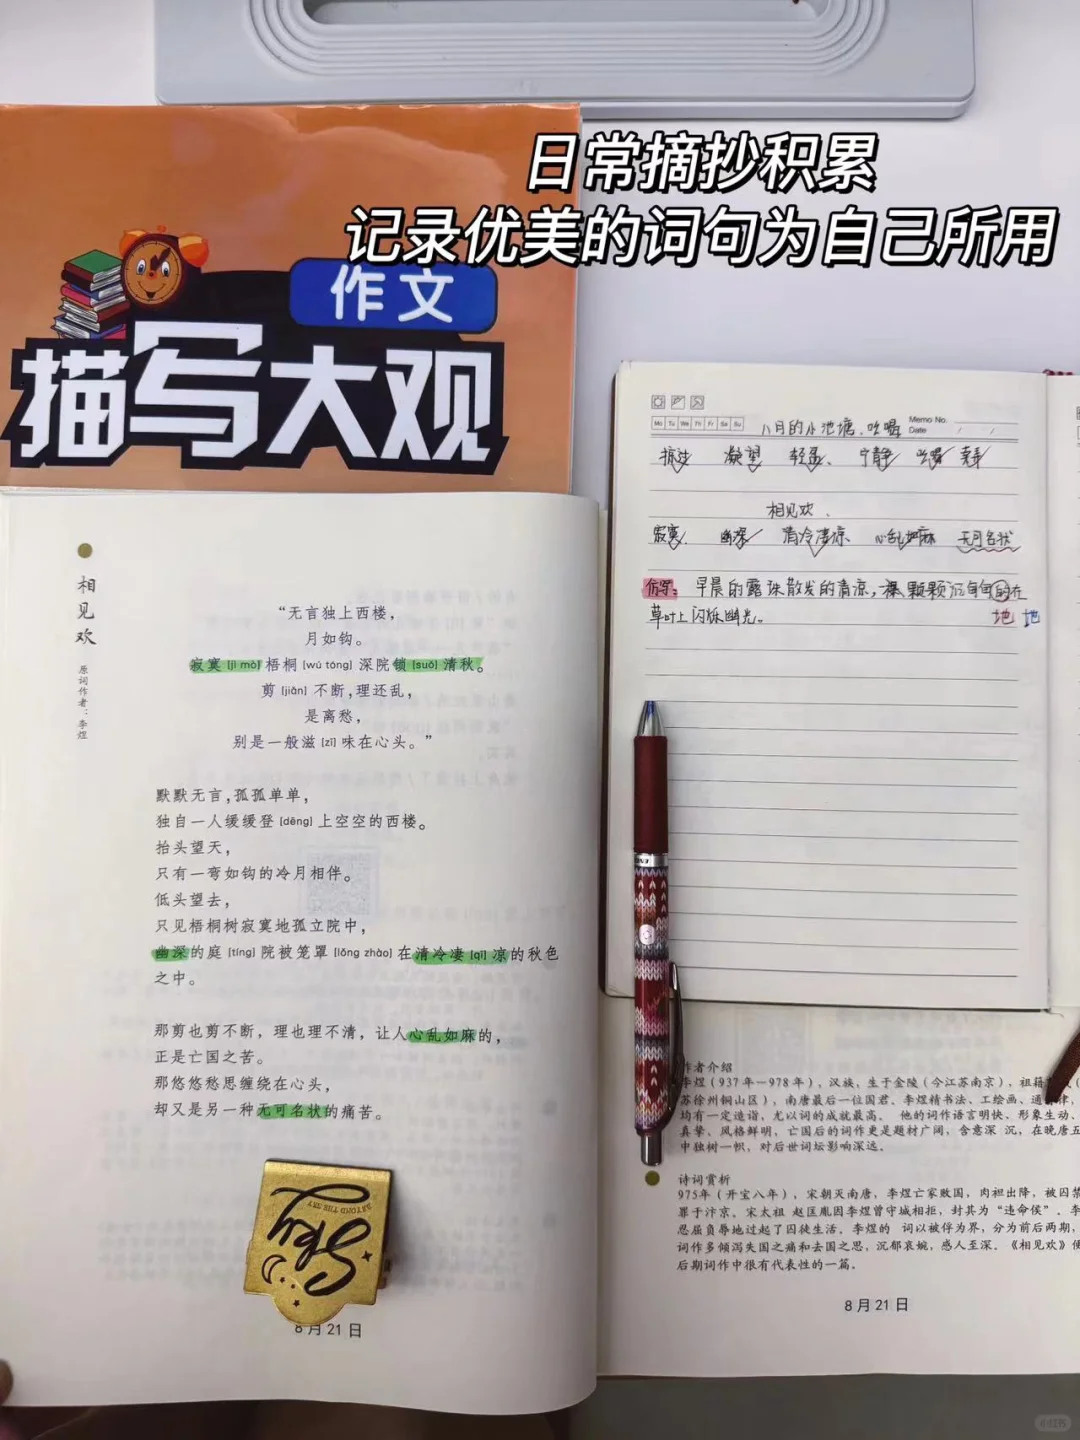 日常摘抄积累
记录优美的词句为自己所用
作文
描写大观
相见欢
原词作者：李煜
“无言独上西楼，
月如钩。
寂寞[jì mò]梧桐[wú tóng]深院锁[suǒ]清秋。
剪[jiǎn]不断，理还乱，
是离愁，
别是一般滋[zī]味在心头。”
默默无言，孤孤单单，
独自一人缓缓登[dēng]上空空的西楼。
抬头望天，
只有一弯如钩的冷月相伴。
低头望去，
只见梧桐树寂寞地孤立院中，
幽深的庭[tíng]院被笼罩[lǒng zhào]在清冷凄[qī]凉的秋色
之中。
那剪也剪不断，理也理不清，让人心乱如麻的，
正是亡国之苦。
那悠悠愁思缠绕在心头，
却又是另一种无可名状的痛苦。
Sky
BEYOND THE SKY
8月21日
Mo Tu We Th Fr Sa Su
Memo No.
Date / /
八月的小池塘、吆喝
凝望 轻盈、宁静 吆喝
相见欢、
寂寞、幽深 清冷凄凉、心乱如麻 无可名状
仿写：早晨的露珠散发的清凉，一颗颗沉甸甸的在
地 地
草叶上闪烁幽光。
作者介绍
李煜（937年—978年），汉族，生于金陵（今江苏南京），祖籍
苏徐州铜山区），南唐最后一位国君。李煜精书法、工绘画、通
均有一定造诣，尤以词的成就最高。他的词作语言明快、形象生动、
真挚、风格鲜明，亡国后的词作更是题材广阔，含意深沉，在晚唐五
中独树一帜，对后世词坛影响深远。
诗词赏析
975年（开宝八年），宋朝灭南唐，李煜亡家败国，肉袒出降，被囚禁
罪于汴京。宋太祖 赵匡胤因李煜曾守城相拒，封其为“违命侯”。李
忍屈负辱地过起了囚徒生活。李煜的 词以被俘为界，分为前后两期，
词作多倾泻失国之痛和去国之思，沉郁哀婉，感人至深。《相见欢》便
后期词作中很有代表性的一篇。
8月21日